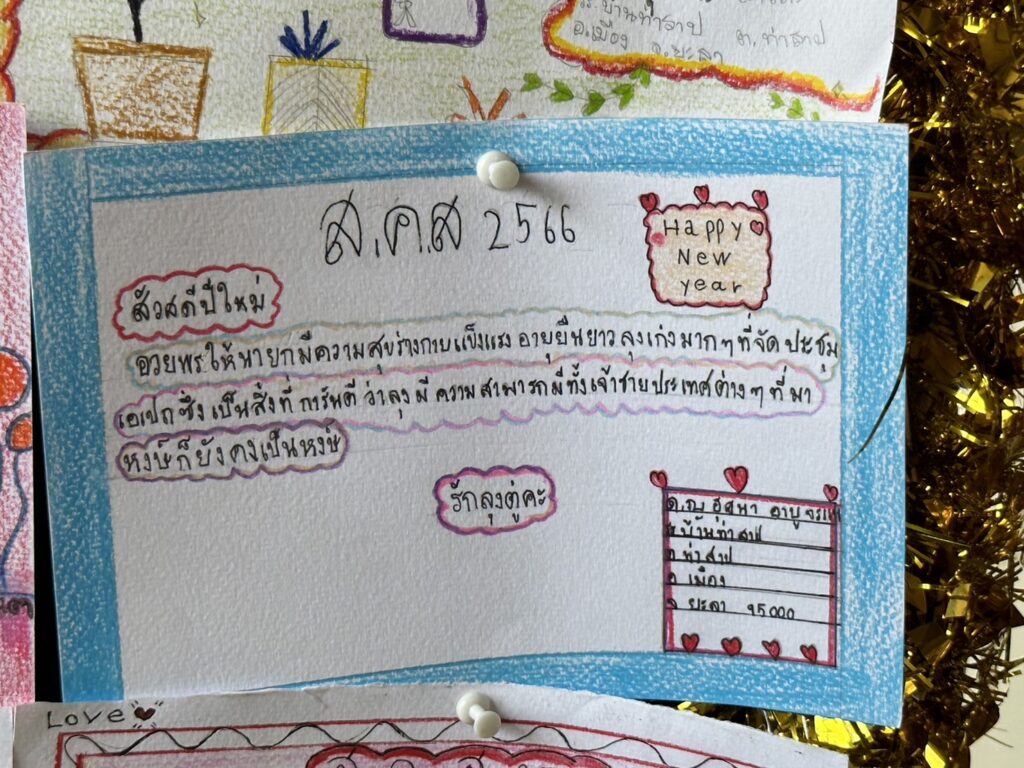 ร.บ้านท่าสาป ต.ท่าสาป
อ.เมือง จ.ยะลา
ส.ค.ส 2566
Happy
New
year
สัวสดีปีใหม่
อวยพรให้นายกมีความสุขร่างกายแข็งแรง อายุยืนยาว ลุงเก่งมากๆที่จัดประชุม
เอเปกซึ่งเป็นสิ่งที่การันตีว่าลุงมีความสามารถมีทั้งเจ้าชายประเทศต่างๆที่มา
หงษ์ก็ยังคงเป็นหงษ์
รักลุงตู่คะ
ด.ญ อาบู
ร.บ้านท่าสาป
ต ท่าสาป
อ เมือง
จ ยะลา 95000
Love